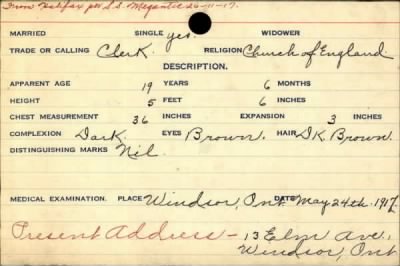 From Halifax per S.S. Megantic 26-11-17.
MARRIED SINGLE yes. WIDOWER
TRADE OR CALLING Clerk. RELIGION Church of England.
DESCRIPTION.
APPARENT AGE 19 YEARS 6 MONTHS
HEIGHT 5 FEET 6 INCHES
CHEST MEASUREMENT 36 INCHES EXPANSION 3 INCHES
COMPLEXION Dark. EYES Brown. HAIR Dk Brown.
DISTINGUISHING MARKS Nil.
MEDICAL EXAMINATION. PLACE Windsor, Ont. DATE May 24th. 1917
Present Address - 13 Elm Ave.,
Windsor, Ont